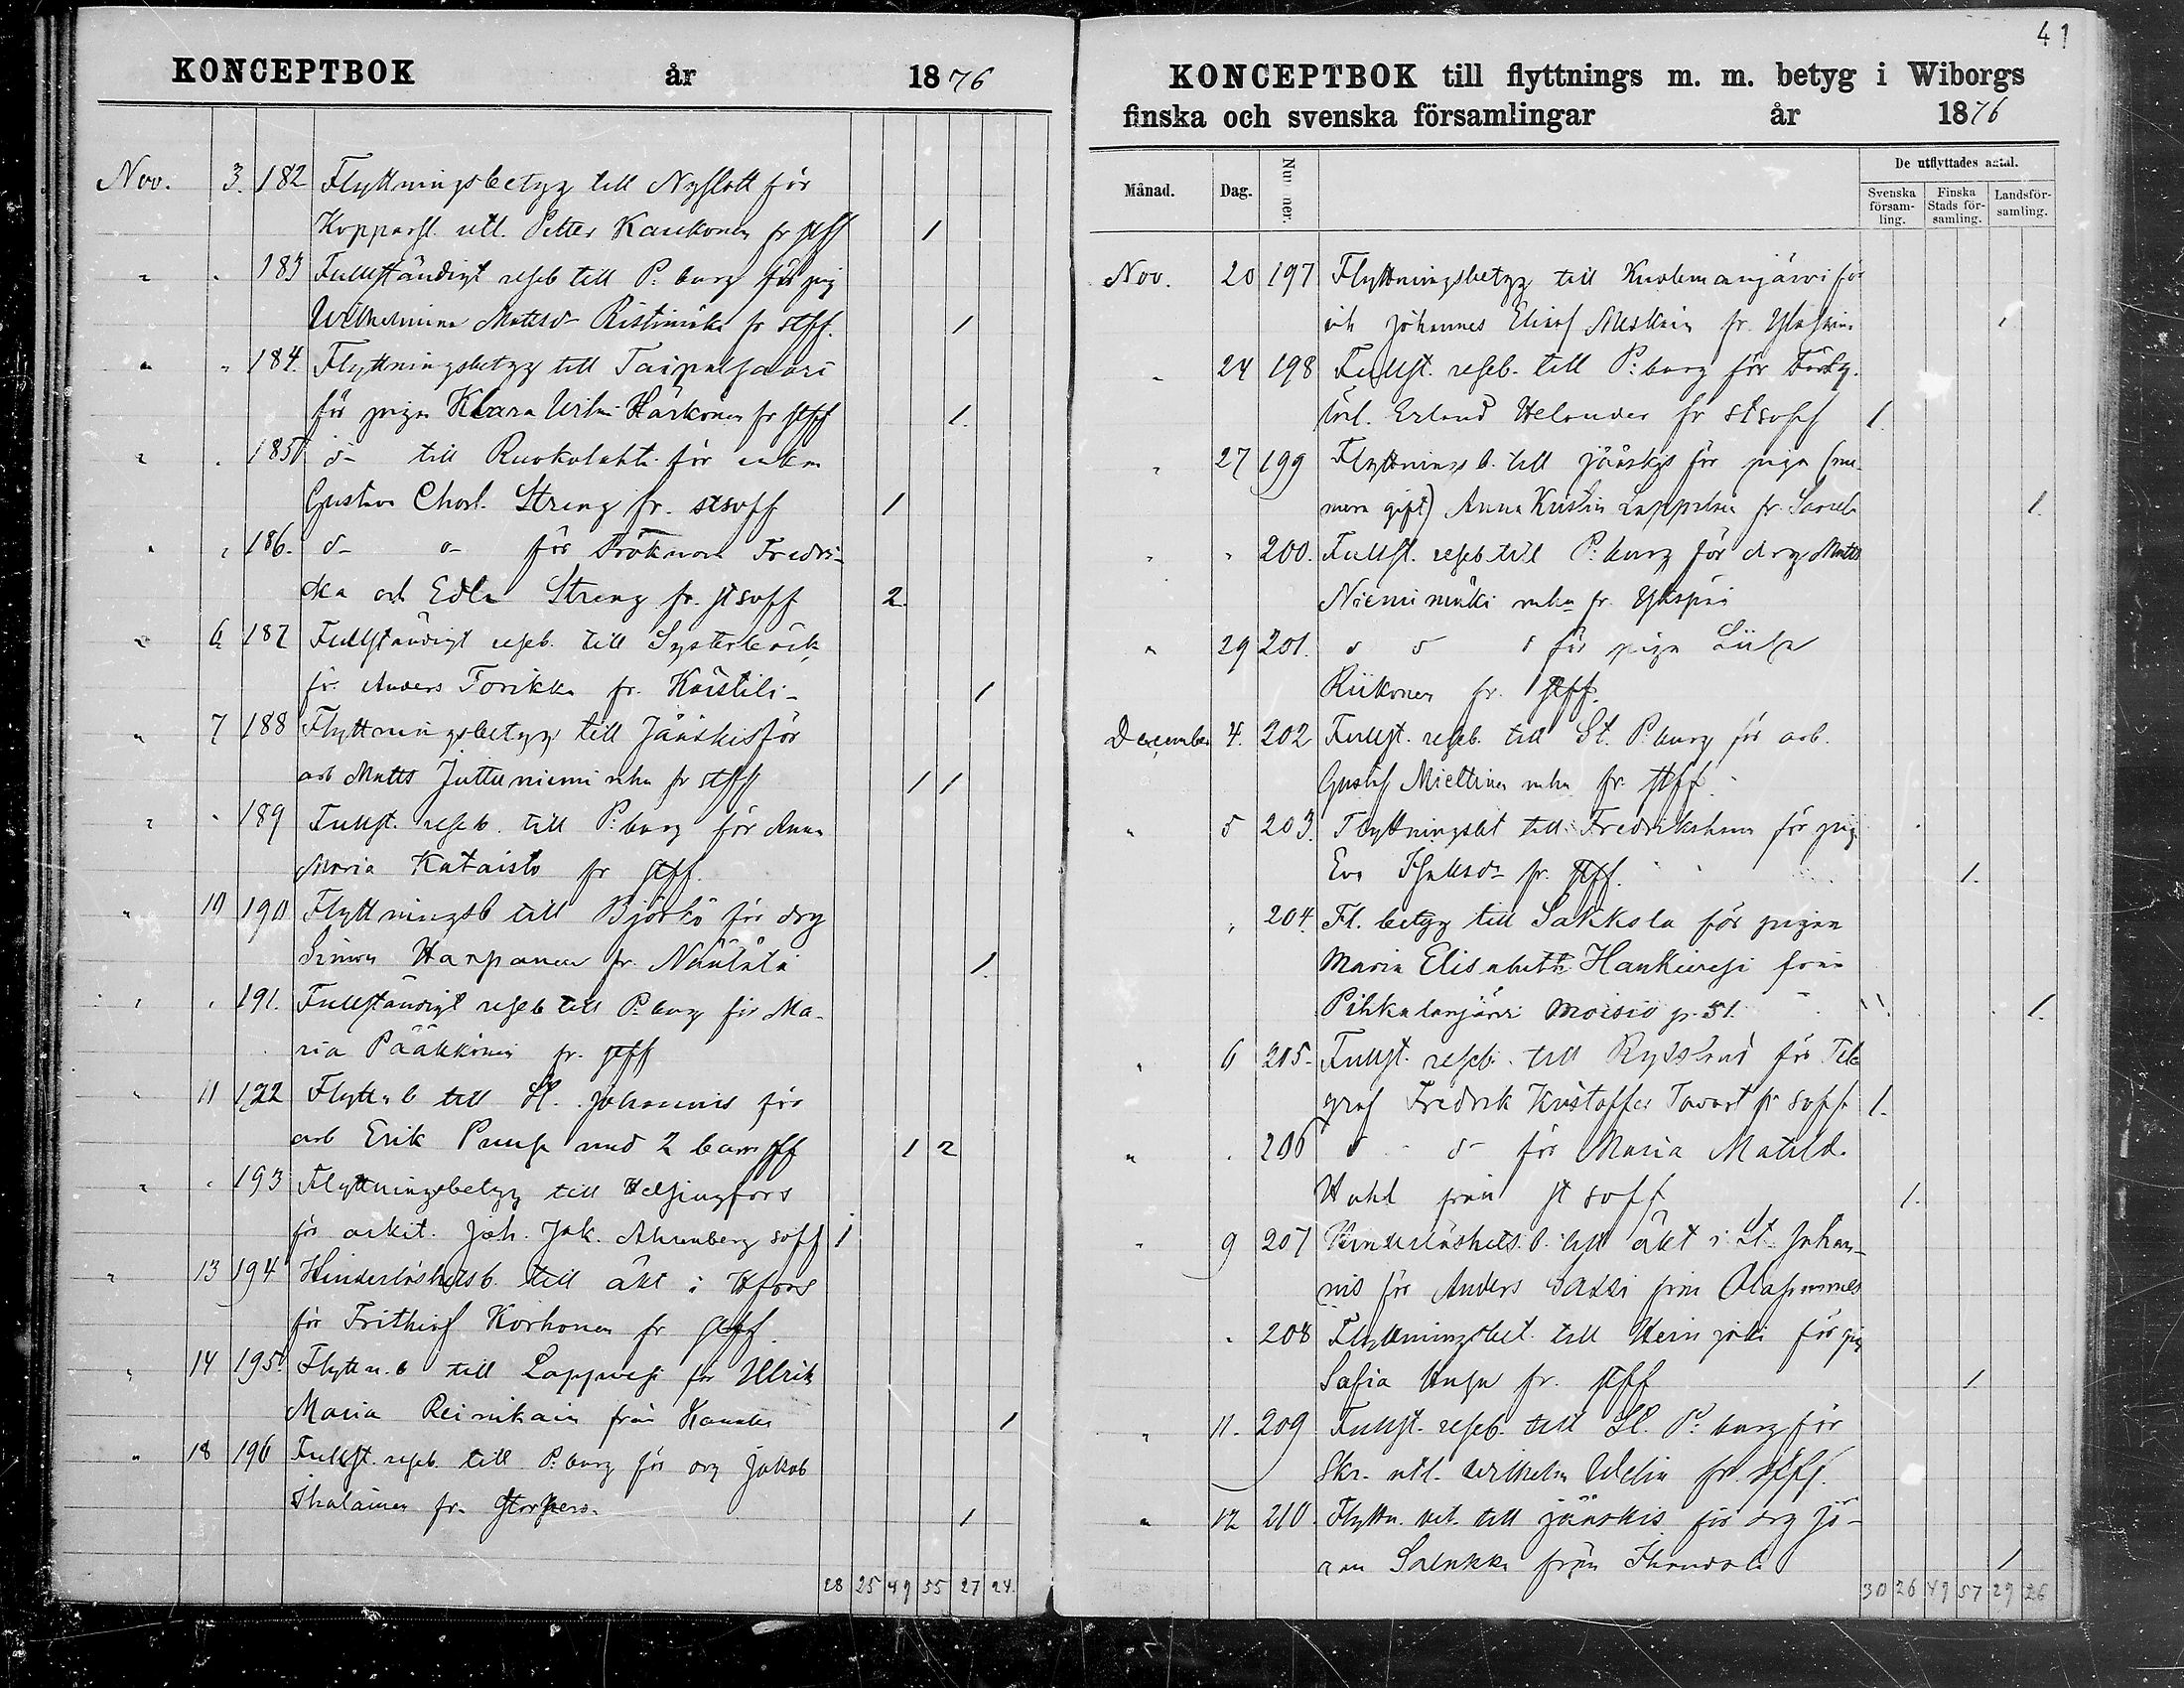 KONCEPTBOK år 1876
Nov. 3. 182 Flyttningsbetyg till Nyslott för
Kopparsl. utl. Petter Kaukonen fr stff 1
" " 183 Fullständigt reseb till P:burg för pig
Wilhelmina Mattsd Ristimäki fr stff. 1
" " 184. Flyttningsbetyg till Taipalsaari
för pigan Klara Wilh. Härkönen fr stff 1.
" " 185 d- till Ruokolahti för enkan
Gustava Charl. Streng fr. stsvff 1
" " 186. d- d- för Fröknarne Fredri-
ka och Edla Streng fr. stsvff 2.
" 6 187 Fullständigt reseb. till Systerbäck
för Anders Torikka fr. Kärstilä- 1
" 7 188 Flyttningsbetyg till Jääskis för
arb Matts Juttuniemi mhu fr stff 1 1
" " 189 Fullst. reseb. till P:burg för Anna
Maria Kataisto fr stff.
" 10 190 Flyttningsb till Björkö för drg
Simon Harpanen fr. Näätälä 1.
" " 191. Fullständigt reseb till P:burg för Ma-
ria Pääkkönen fr. stff
" 11 192 Flyttn b till St. Johannis för
arb Erik Puusa med 2 barn stff 1 2
" " 193 Flyttningsbetyg till Helsingfors
för arkit. Joh. Jak. Ahrenberg svff 1
" 13 194 Hinderlöshetsb. till äkt i Hfors
för Frithiof Korhonen fr stff.
" 14 195 Flyttn. b till Lappvesi för Ulrik
Maria Reinikain från 1
" 18 196 Fullst. reseb. till P:burg för drg Jakob
Ihalainen fr. 1
28 25 49 55 27 24.
41
KONCEPTBOK till flyttnings m. m. betyg i Wiborgs
finska och svenska församlingar år 1876
Månad. Dag. Nummer. De utflyttades antal.
Svenska församling. Finska Stads församling. Landsförsamling.
Nov. 20 197 Flyttningsbetyg till Kuolemanjärvi för
Johannes 1
" 24 198 Fullst. reseb. till P:burg för
Erland Helander fr stsvff 1.
" 27 199 Flyttnings b. till Jääskis för pigan (nu-
mera gift) Anna Kristin 1.
" " 200. Fullst. reseb till P:burg för drg Matts
Nieminmäki mhu fr. Ykspää
" 29 201. d d d för pigan Liisa
Riikonen fr. stff.
December 4. 202 Fullst. reseb. till St. P:burg för arb.
Gustaf Miettinen mhu fr. stff.
" 5 203. Flyttningsbet till Fredrikshamn för pig
Eva fr. stff. 1.
" 204. Fl. betyg till Sakkola för pigan
Maria Elisabeth Hankivesi från
Pihkalanjärvi Moisio p. 51. 1.
" 6 205. Fullst. reseb. till Ryssland för Tele
graf Fredrik Kristoffer Tavast fr svff 1.
" . 206 d- d- för Maria Matild.
Hohl från st svff 1.
" 9 207 Hinderlöshets b. till äkt i St. Johan-
nis för Anders Sassi från
" 208 Flyttningsbet. till Heinjoki för pig
Safia fr. stff 1.
" 11. 209 Fullst. reseb. till St. P:burg för
Skr. utl. Wilhelm Udelin fr. stff.
" 12 210. Flyttn. bet. till Jääskis för drg Jö-
ran från 1
30 26 49 57 29 26